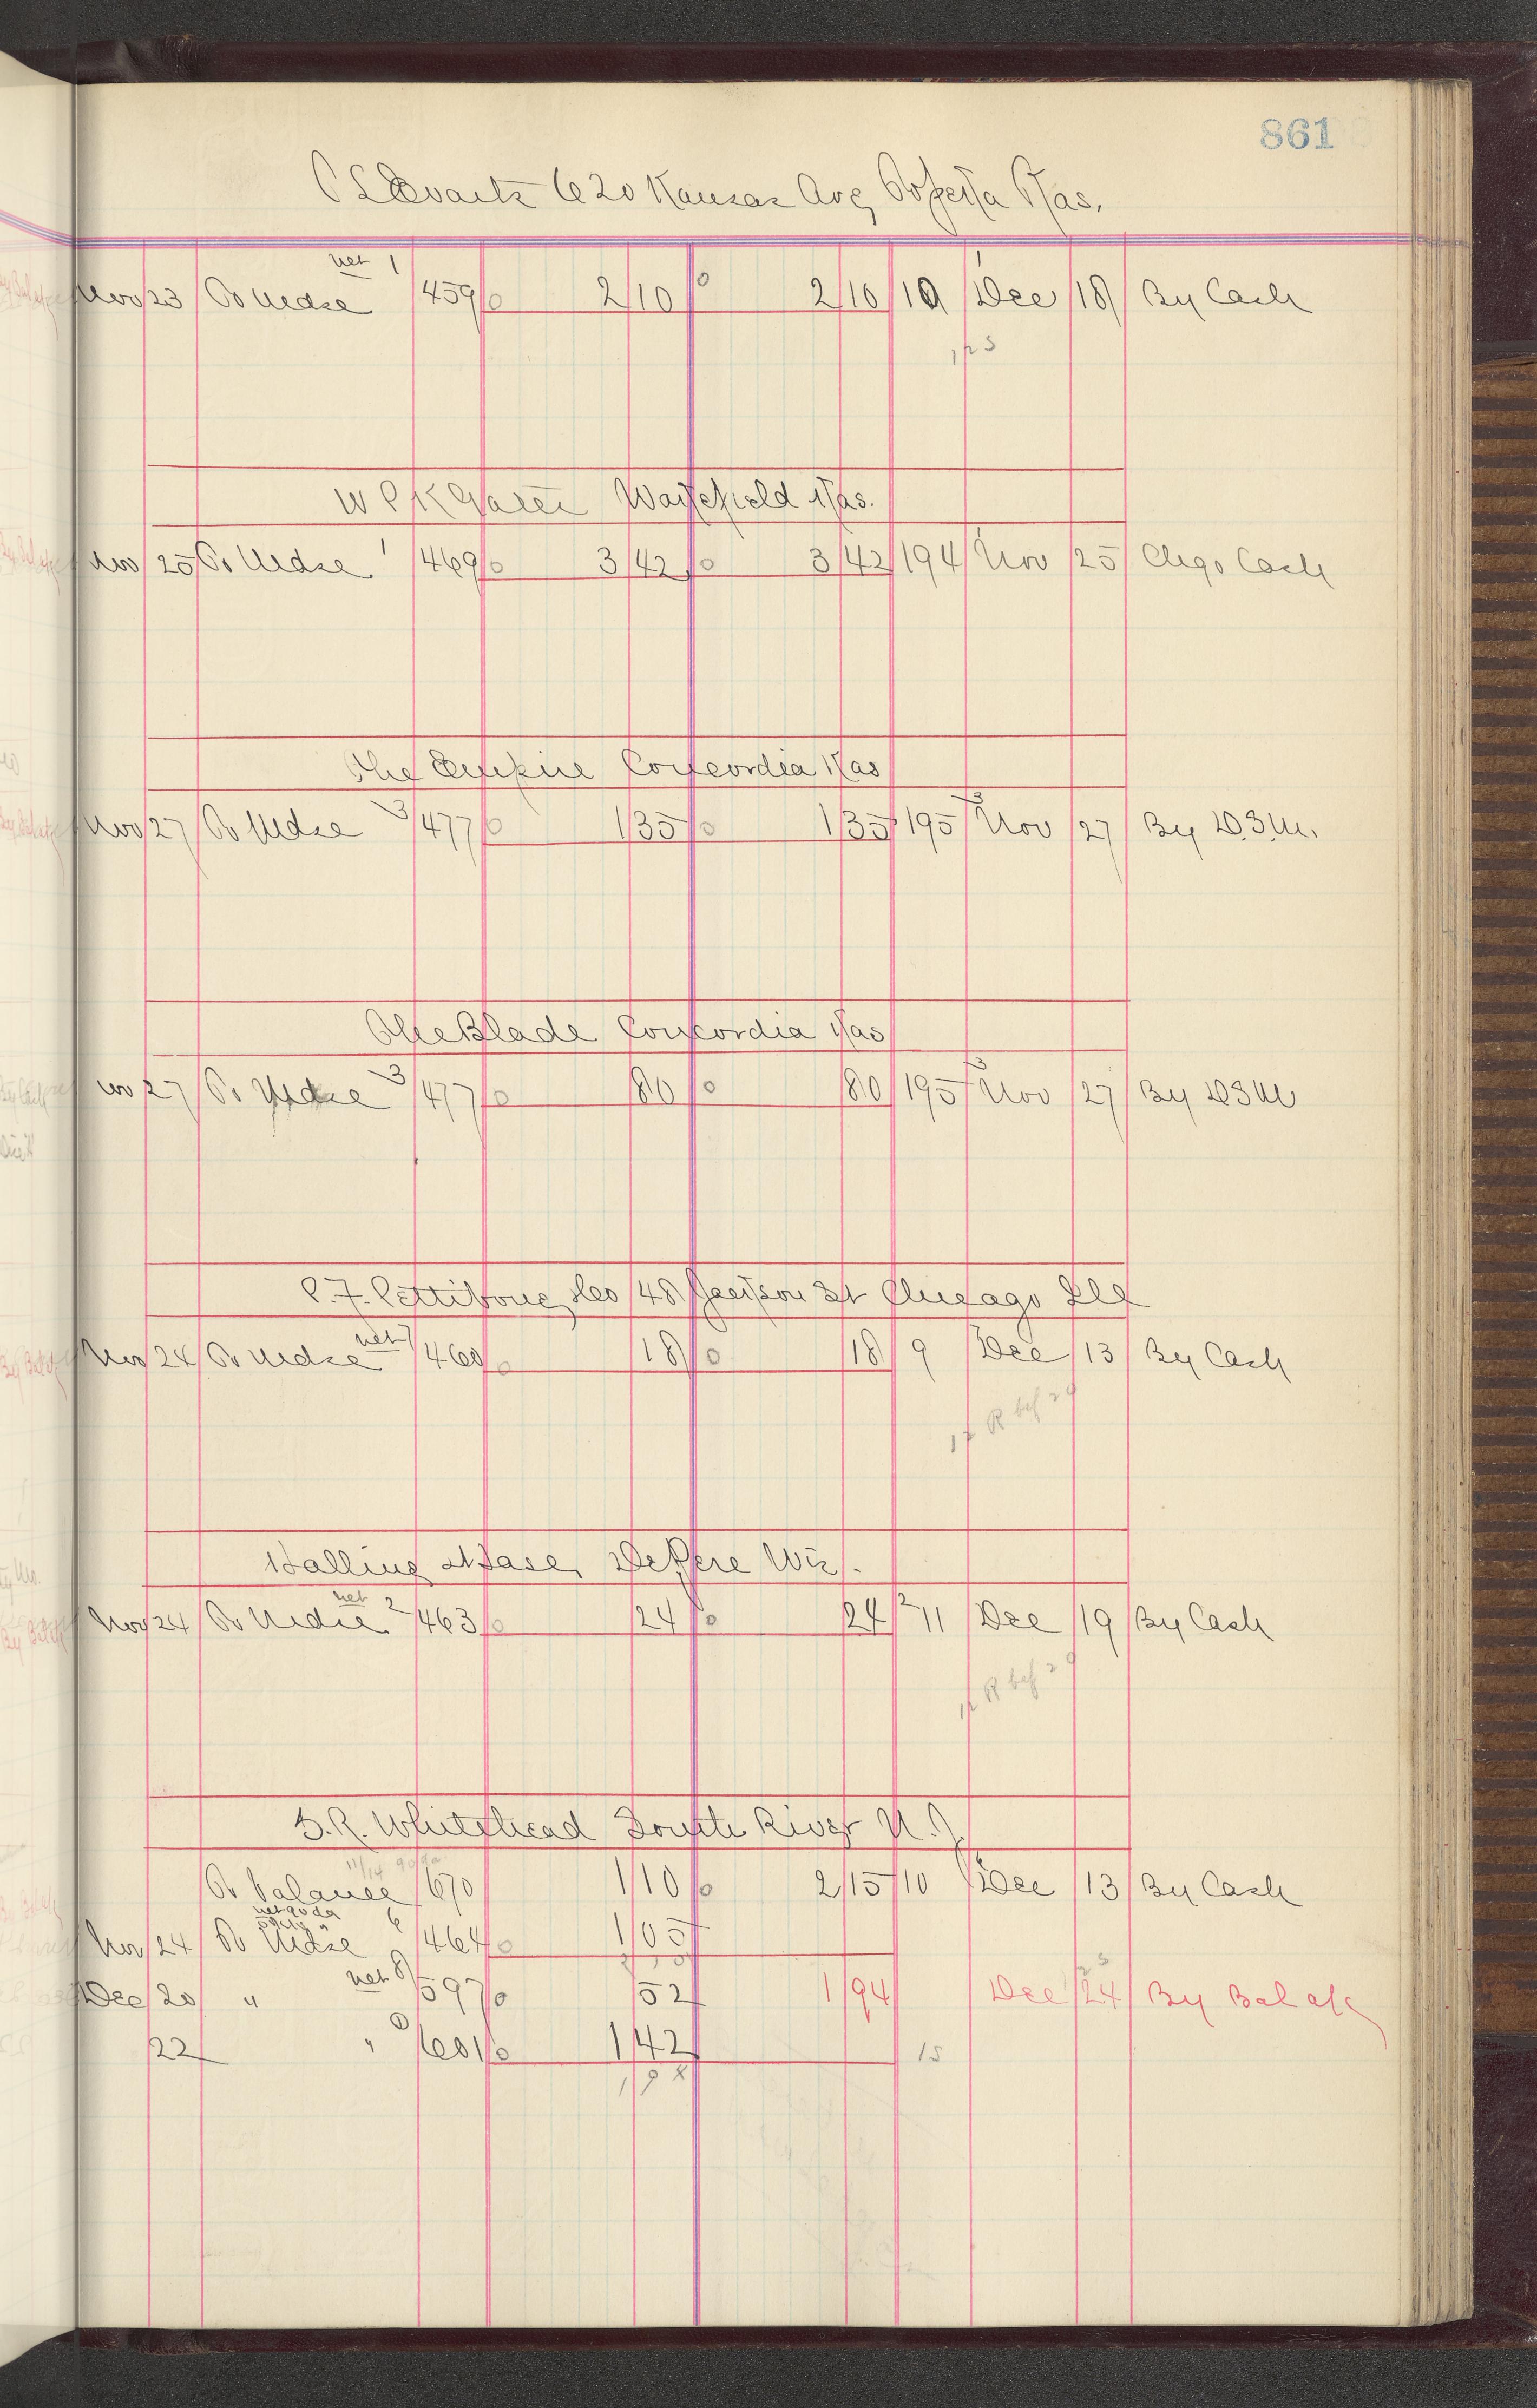 861
620 Kansas Ave, Topeka Kas.
net 1
Nov 23 To Mdse 459 2 10 2 10 10 Dec 18 By Cash
Wakefield Kas.
Nov 25 To Mdse 1 469 3 42 3 42 194 Nov 25 Chgo Cash
The Empire Concordia Kas
Nov 27 To Mdse 3 477 1 35 1 35 195 3 Nov 27 By D.S.M.
The Blade Concordia Kas
Nov 27 To Mdse 3 477 80 80 195 3 Nov 27 By DSM
P. F. Pettibone & Co 48 Jackson St Chicago Ill
net 7
Nov 24 To Mdse 460 18 18 9 Dec 13 By Cash
R bef 29
Halline & Case, DePere Wis.
net 2
Nov 24 To Mdse 463 24 24 2 11 Dec 19 By Cash
R bef 29
S. R. Whitehead South River N.J.
To balance 670 1 10 2 15 10 Dec 13 By Cash
Nov 24 To Mdse 6 464 1 05
Dec 20 " net 8 597 52 1 94 Dec 24 By Bal
22 " 601 1 42 15
1 94